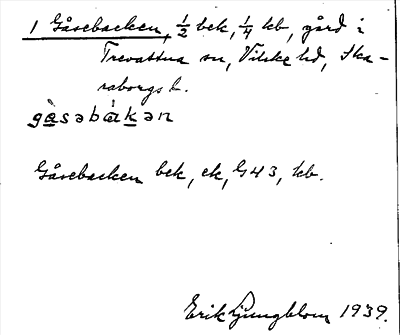 1 Gåsebacken, ½ bek, ¼ kb, gård i
Trevattna sn, Vilske hd, Ska-
raborgs l.
gåsəbàkən
Gåsebacken bek, ek, G43, kb.
Erik Ljungblom 1939.